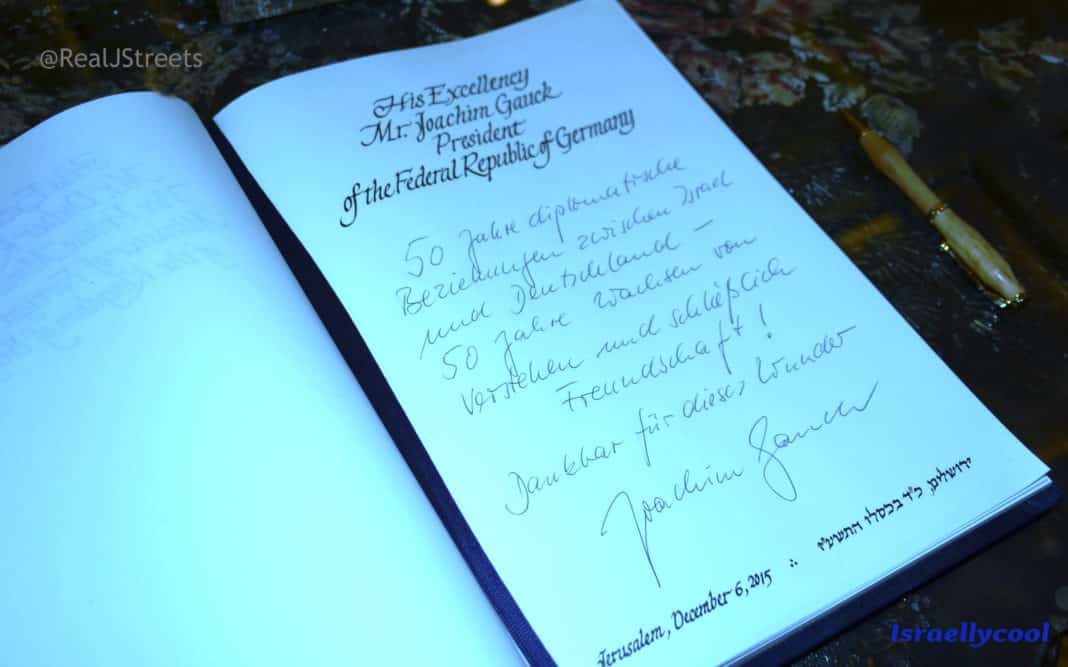 @RealJStreets
His Excellency
Mr. Joachim Gauck
President
of the Federal Republic of Germany
50 Jahre diplomatische
Beziehungen zwischen Israel
und Deutschland –
50 Jahre Wachsen von
Verstehen und schließlich
Freundschaft!
Dankbar für dieses Wunder
Joachim Gauck
Jerusalem, December 6, 2015 ∴ ירושלים, כ"ד בכסלו התשע"ו
Israellycool